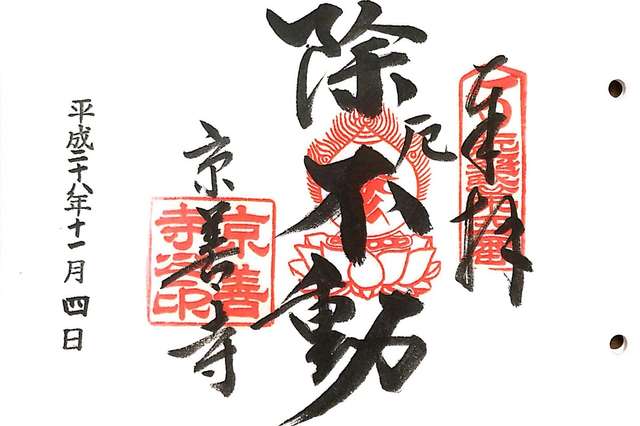 奉拝
除厄不動
京善寺
京善寺之印
平成二十八年十一月四日